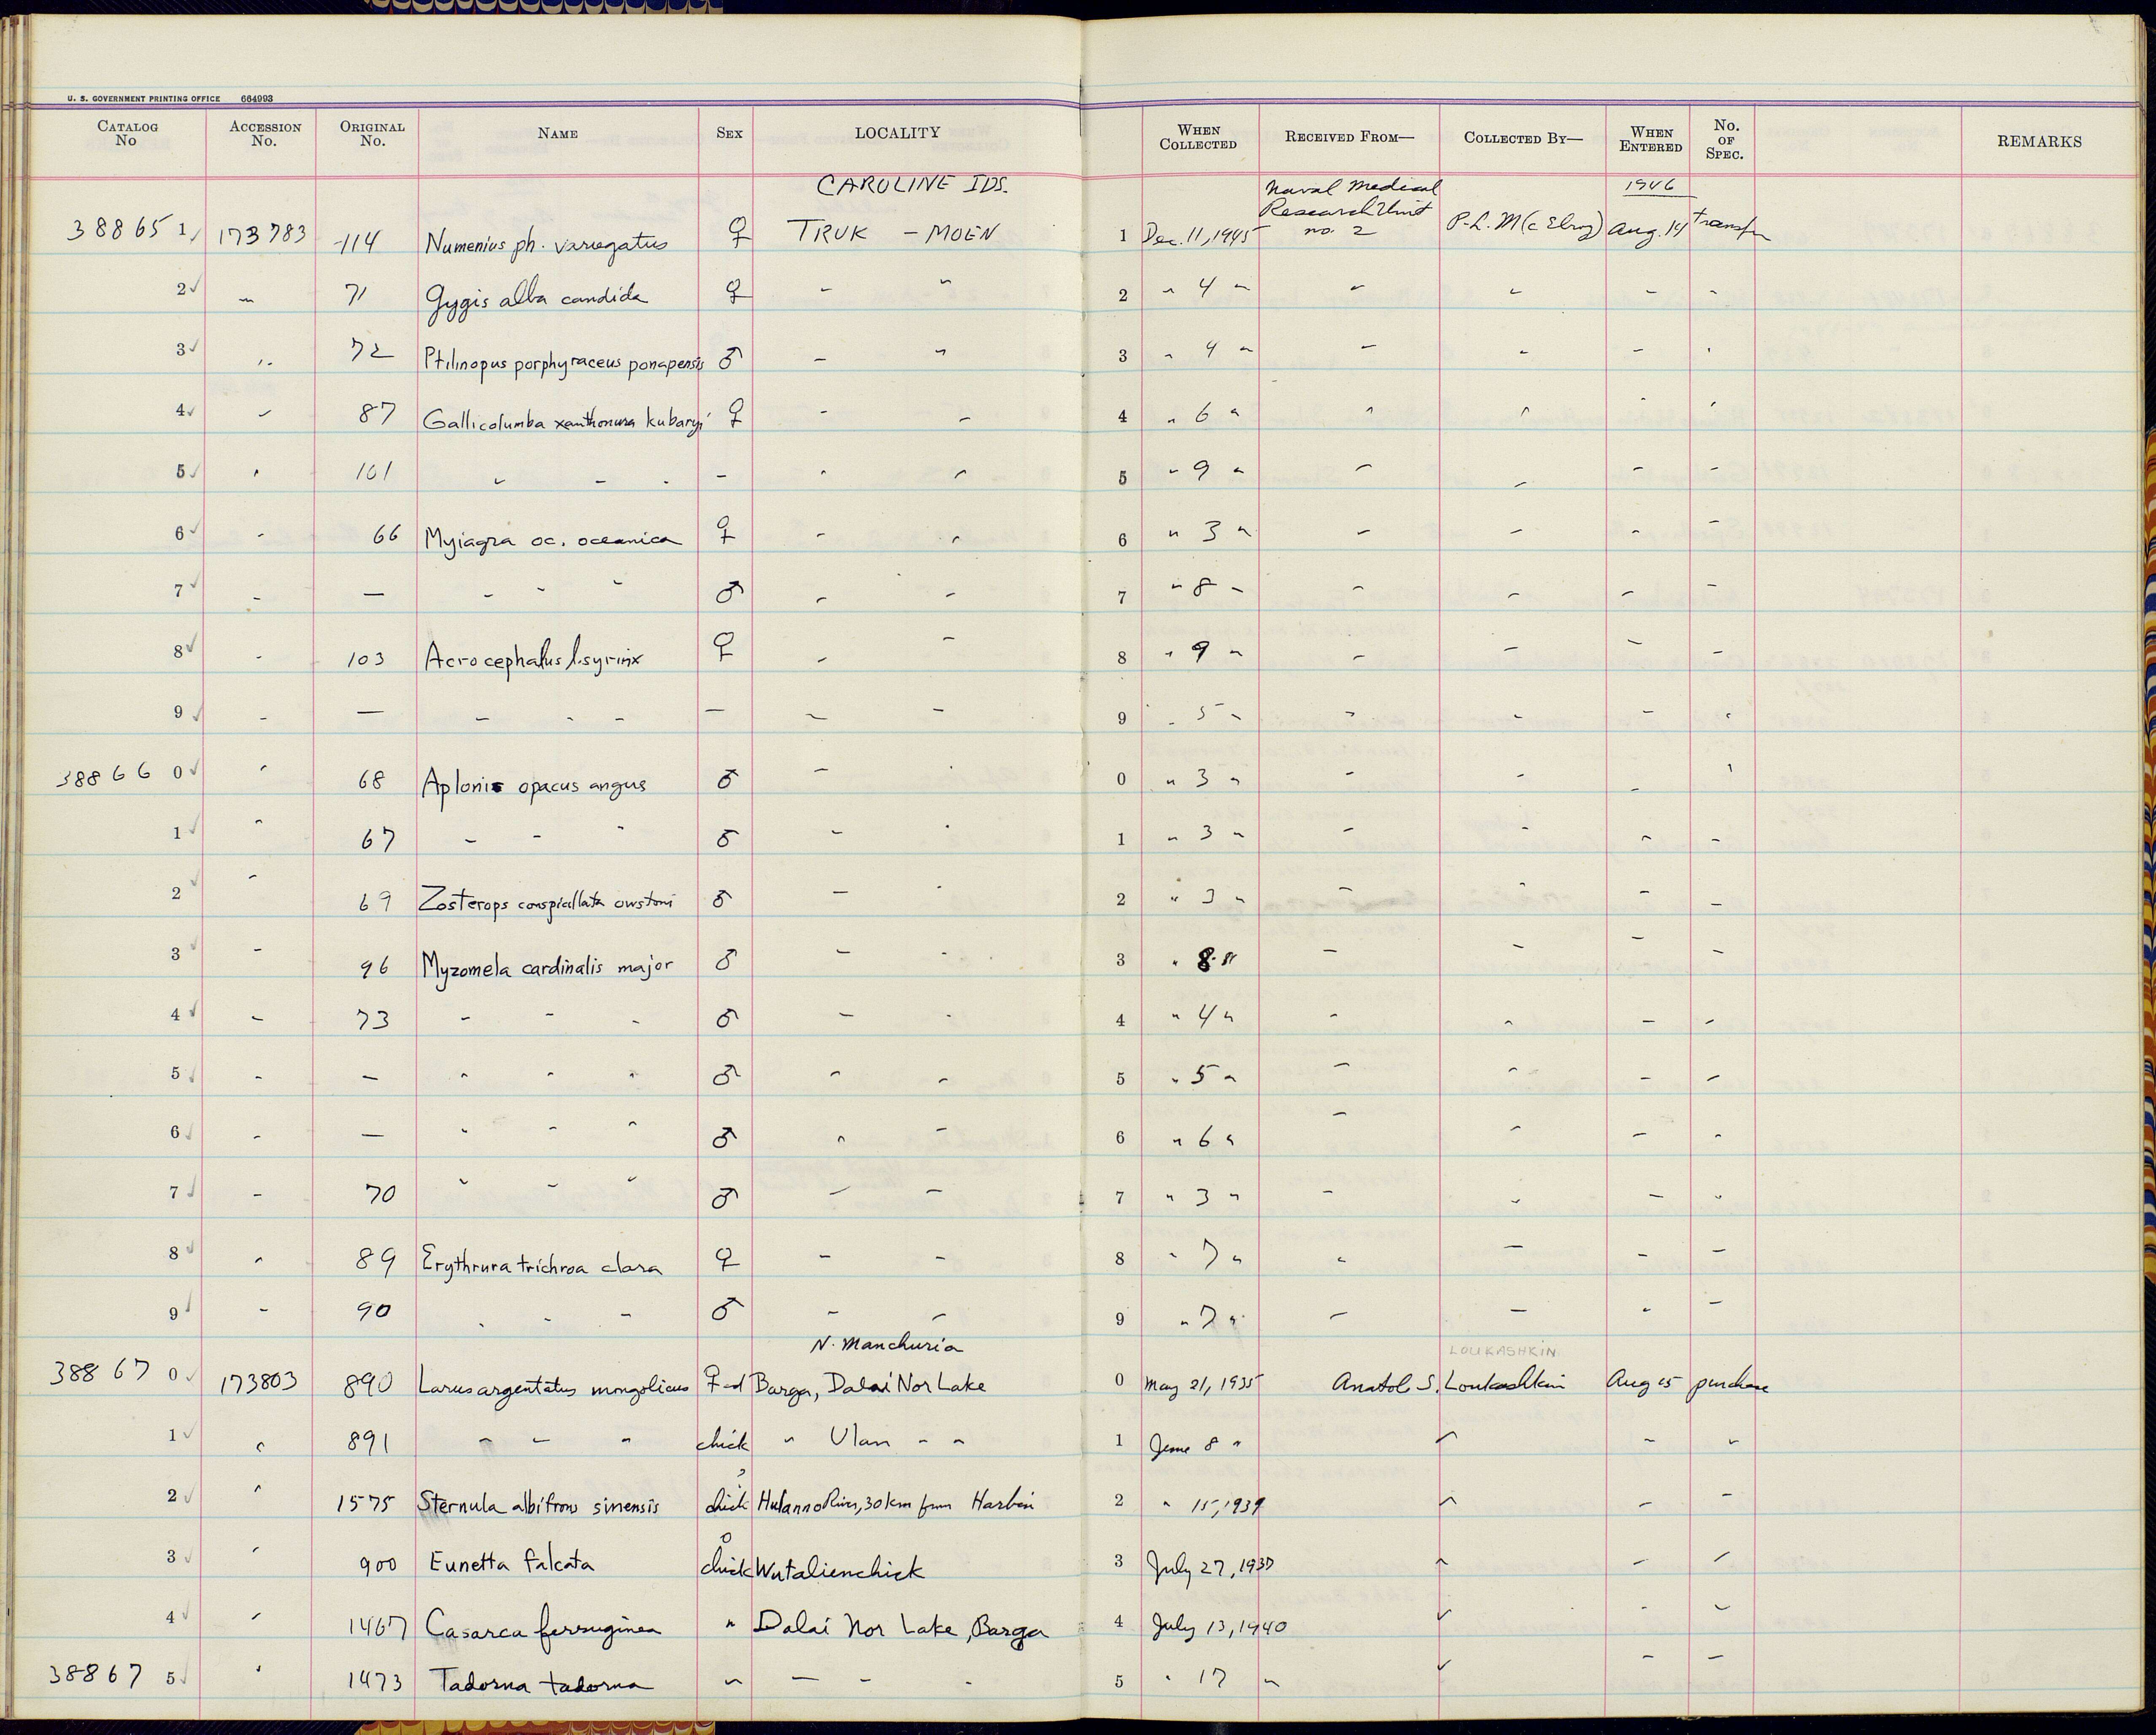 U. S. GOVERNMENT PRINTING OFFICE 664993
CATALOG No ACCESSION No. ORIGINAL No. NAME SEX LOCALITY WHEN COLLECTED RECEIVED FROM— COLLECTED BY— WHEN ENTERED No. OF SPEC. REMARKS
CAROLINE IDS. Naval Medical Research Unit no. 2 1946
388651 173783 114 Numenius ph. variegatus ♀ TRUK - MOEN 1 Dec. 11, 1945 P.L. M(cElroy) Aug. 14 transfer
2 " 71 Gygis alba candida ♀ " " 2 " 4 " " " " "
3 " 72 Ptilinopus porphyraceus ponapensis ♂ " " 3 " 4 " " " " "
4 " 87 Gallicolumba xanthonura kubaryi ♀ " " 4 " 6 " " " " "
5 " 101 " " " " " " 5 " 9 " " " " "
6 " 66 Myiagra oc. oceanica ♀ " " 6 " 3 " " " " "
7 " — " " " ♂ " " 7 " 8 " " " " "
8 " 103 Acrocephalus l. syrinx ♀ " " 8 " 9 " " " " "
9 " — " " " — " " 9 " 5 " " " " "
388660 " 68 Aplonis opacus angus ♂ " " 0 " 3 " " " " "
1 " 67 " " " ♂ " " 1 " 3 " " " " "
2 " 69 Zosterops conspicillata owstoni ♂ " " 2 " 3 " " " " "
3 " 96 Myzomela cardinalis major ♂ " " 3 " 8 " " " " "
4 " 73 " " " ♂ " " 4 " 4 " " " " "
5 " — " " " ♂ " " 5 " 5 " " " " "
6 " — " " " ♂ " " 6 " 6 " " " " "
7 " 70 " " " ♂ " " 7 " 3 " " " " "
8 " 89 Erythrura trichroa clara ♀ " " 8 " 7 " " " " "
9 " 90 " " " ♂ " " 9 " 7 " " " " "
N. Manchuria LOUKASHKIN
388670 173803 890 Larus argentatus mongolicus ♀ ad Barga, Dalai Nor Lake 0 May 21, 1935 Anatol S. Loukashkin Aug 15 purchase
1 " 891 " " " chick " Ulan " " 1 June 8 " " " "
2 " 1575 Sternula albifrons sinensis chick Hulanno River, 30 km from Harbin 2 " 15, 1939 " " "
3 " 900 Eunetta falcata chick Wutalienchick 3 July 27, 1937 " " "
4 " 1467 Casarca ferruginea " Dalai Nor Lake, Barga 4 July 13, 1940 " " "
388675 " 1473 Tadorna tadorna " " " " 5 " 17 " " " "